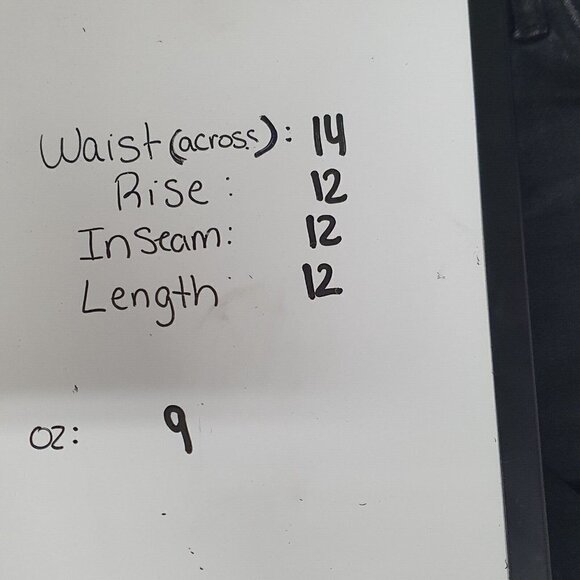 Waist (across): 14
Rise: 12
Inseam: 12
Length: 12
oz: 9